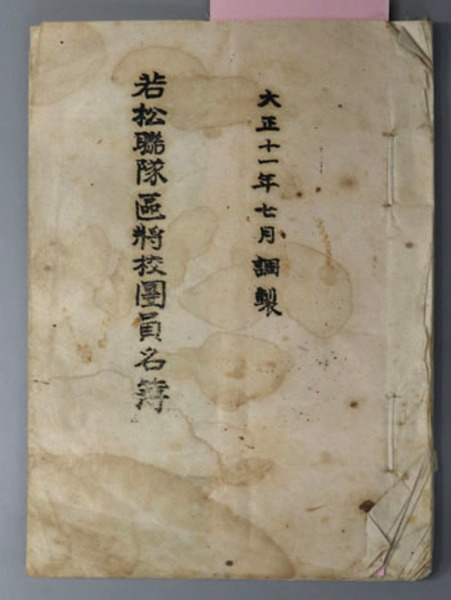 大正十一年七月調製
若松聯隊區將校團員名簿